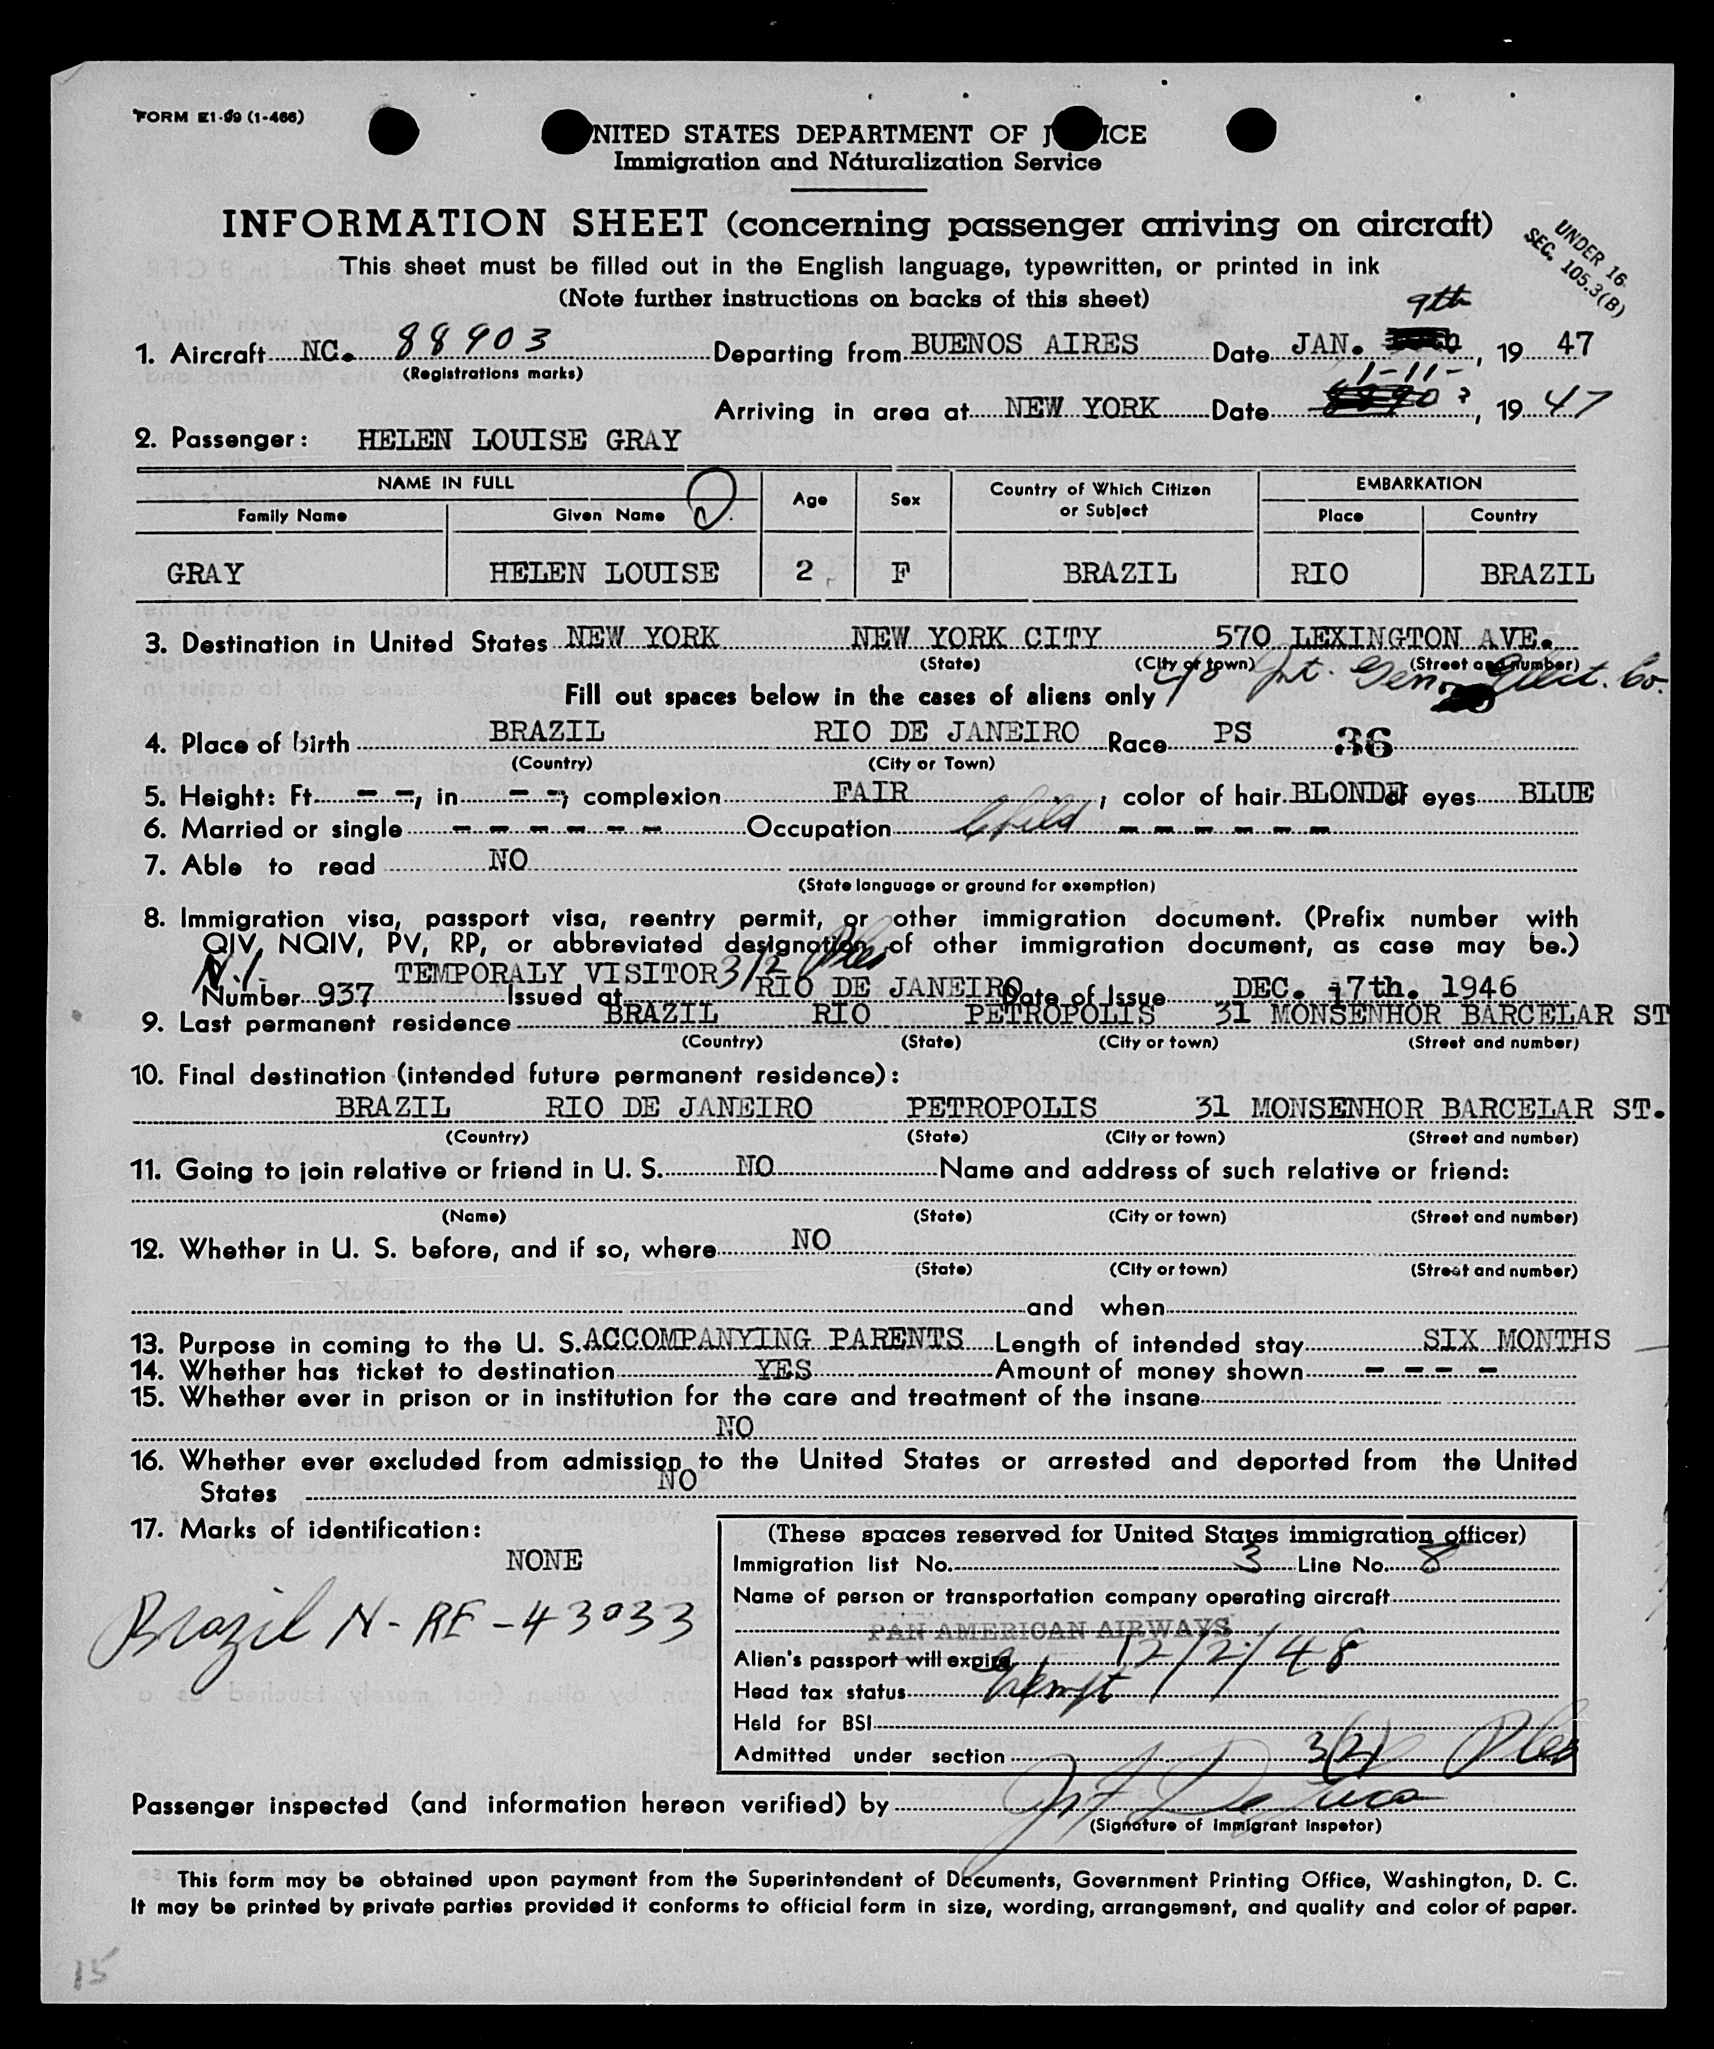 FORM E1-99 (1-466)
NITED STATES DEPARTMENT OF J ICE
Immigration and Naturalization Service
INFORMATION SHEET (concerning passenger arriving on aircraft)
UNDER 16
SEC. 105.3(B)
This sheet must be filled out in the English language, typewritten, or printed in ink
(Note further instructions on backs of this sheet)
9th
1. Aircraft NC. 88903 Departing from BUENOS AIRES Date JAN. , 19 47
(Registrations marks)
1-11-
Arriving in area at NEW YORK Date , 19 47
2. Passenger: HELEN LOUISE GRAY
NAME IN FULL Age Sex Country of Which Citizen or Subject EMBARKATION
Family Name Given Name Place Country
GRAY HELEN LOUISE 2 F BRAZIL RIO BRAZIL
3. Destination in United States NEW YORK NEW YORK CITY 570 LEXINGTON AVE.
(State) (City or town) (Street and number)
c/o Int. Gen. Elect. Co.
Fill out spaces below in the cases of aliens only
4. Place of birth BRAZIL RIO DE JANEIRO Race PS 36
(Country) (City or Town)
5. Height: Ft. – –, in. – –; complexion FAIR ; color of hair BLONDE of eyes BLUE
6. Married or single – – – – – – Occupation Child – – – – – –
7. Able to read NO
(State language or ground for exemption)
8. Immigration visa, passport visa, reentry permit, or other immigration document. (Prefix number with
QIV, NQIV, PV, RP, or abbreviated designation of other immigration document, as case may be.)
N.I. TEMPORALY VISITOR 3/2
Number 937 Issued at RIO DE JANEIRO Date of Issue DEC. 17th. 1946
9. Last permanent residence BRAZIL RIO PETROPOLIS 31 MONSENHOR BARCELAR ST
(Country) (State) (City or town) (Street and number)
10. Final destination (intended future permanent residence):
BRAZIL RIO DE JANEIRO PETROPOLIS 31 MONSENHOR BARCELAR ST.
(Country) (State) (City or town) (Street and number)
11. Going to join relative or friend in U. S. NO Name and address of such relative or friend:
(Name) (State) (City or town) (Street and number)
12. Whether in U. S. before, and if so, where NO
(State) (City or town) (Street and number)
and when
13. Purpose in coming to the U. S. ACCOMPANYING PARENTS Length of intended stay SIX MONTHS
14. Whether has ticket to destination YES Amount of money shown – – – –
15. Whether ever in prison or in institution for the care and treatment of the insane
NO
16. Whether ever excluded from admission to the United States or arrested and deported from the United
States NO
17. Marks of identification:
NONE
Brazil N-RE-43033
(These spaces reserved for United States immigration officer)
Immigration list No. 3 Line No. 8
Name of person or transportation company operating aircraft
PAN AMERICAN AIRWAYS
Alien's passport will expire 12/2/48
Head tax status Exempt
Held for BSI
Admitted under section 3(2)
Passenger inspected (and information hereon verified) by
(Signature of immigrant inspetor)
This form may be obtained upon payment from the Superintendent of Documents, Government Printing Office, Washington, D. C.
It may be printed by private parties provided it conforms to official form in size, wording, arrangement, and quality and color of paper.
15